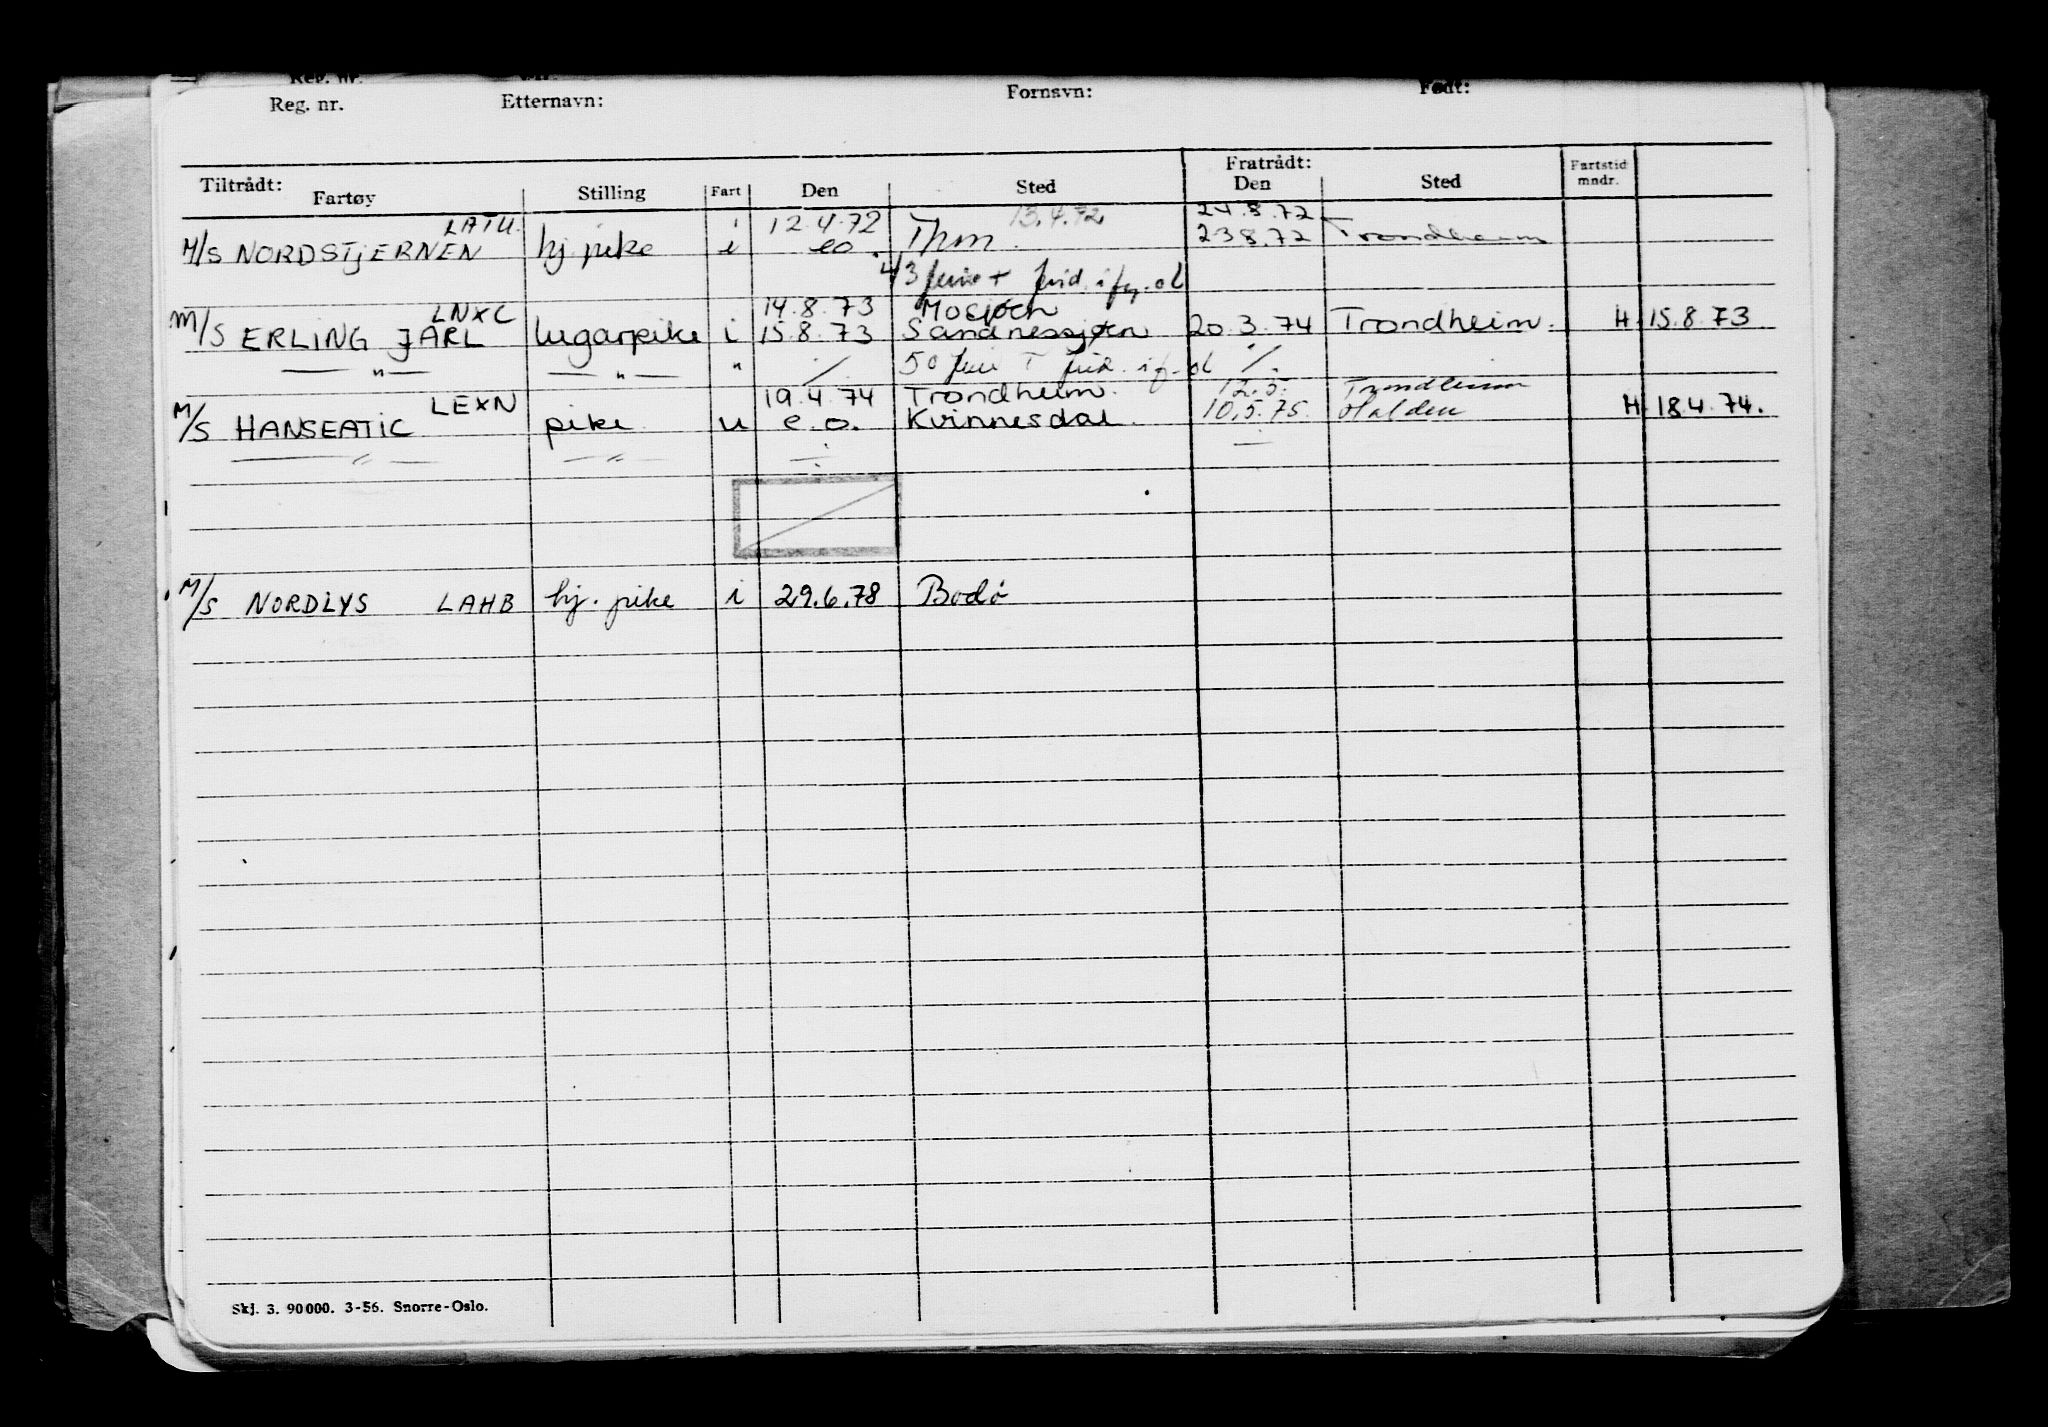 Reg. nr.
Reg. nr. Etternavn: Fornavn: Født:
Tiltrådt: Fratrådt: Fartstid
Fartøy Stilling Fart Den Sted Den Sted mndr.
LATU. i 12.4.72 13.4.72 24.8.72
M/S NORDSTJERNEN hj. pike i eo Thm. 23.8.72 Trondheim
LNXC 14.8.73 Mosjøen
M/S ERLING JARL lugarpike i 15.8.73 Sandnessjøen 20.3.74 Trondheim. H. 15.8.73
— " — — " — " 50
LEXN 19.4.74 Trondheim. 12.5. Trondheim
M/S HANSEATIC pike u e.o. Kvinnesdal. 10.5.75. Halden H. 18.4.74.
— " — — " —
M/S NORDLYS LAHB hj. pike i 29.6.78 Bodø
Skj. 3. 90000. 3-56. Snorre-Oslo.